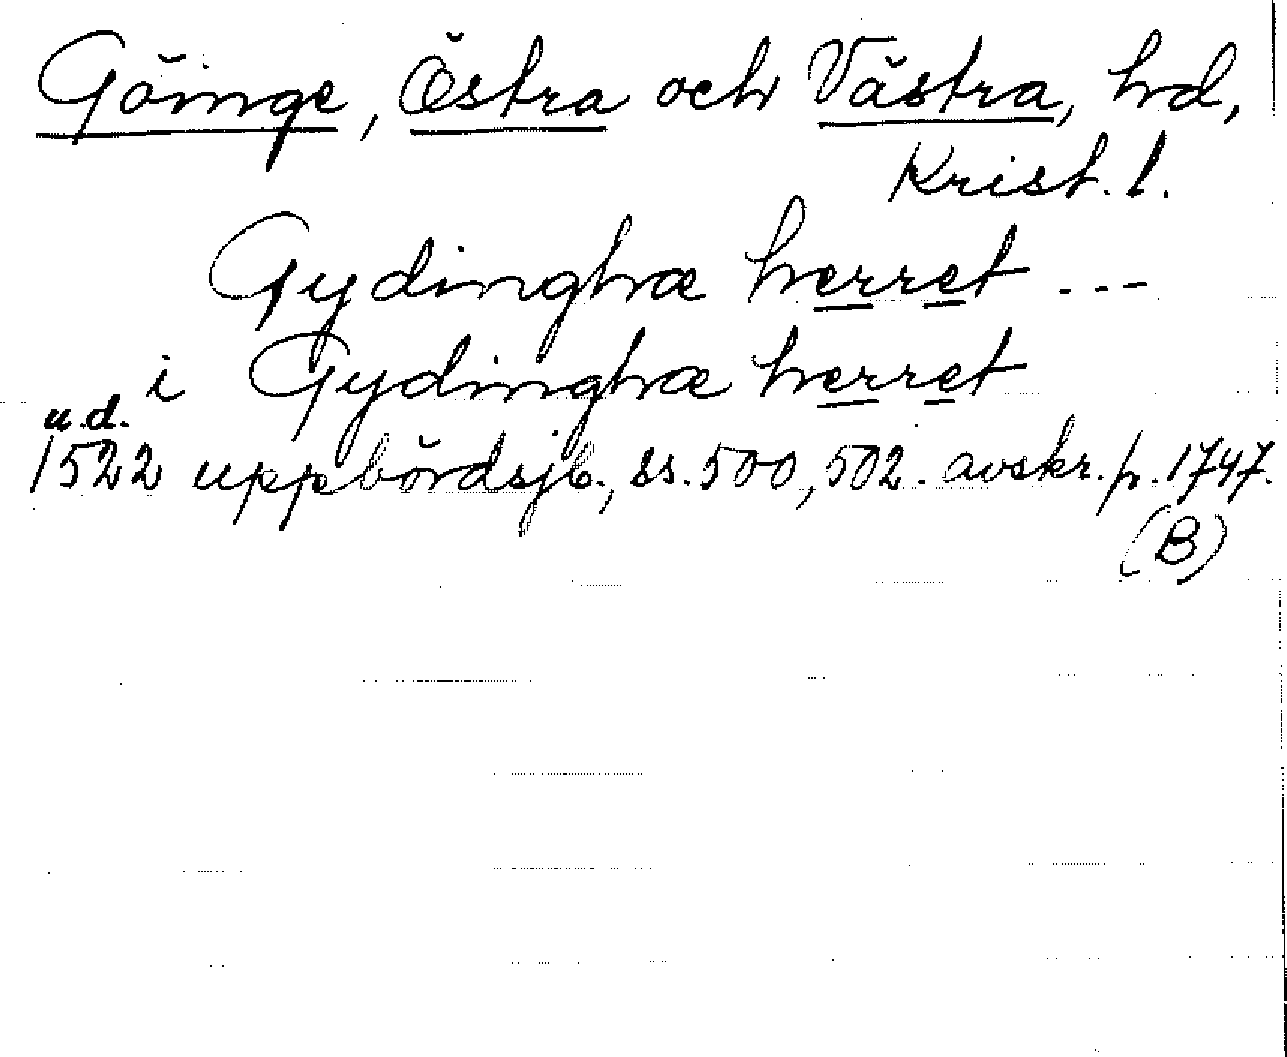 Göinge, Östra och Västra, hd,
Krist. l.
Gydinghæ herret ---
i Gydinghæ herret
u.d.
1522 uppbördsjb., ss. 500, 502. avskr. p. 1747.
(B)